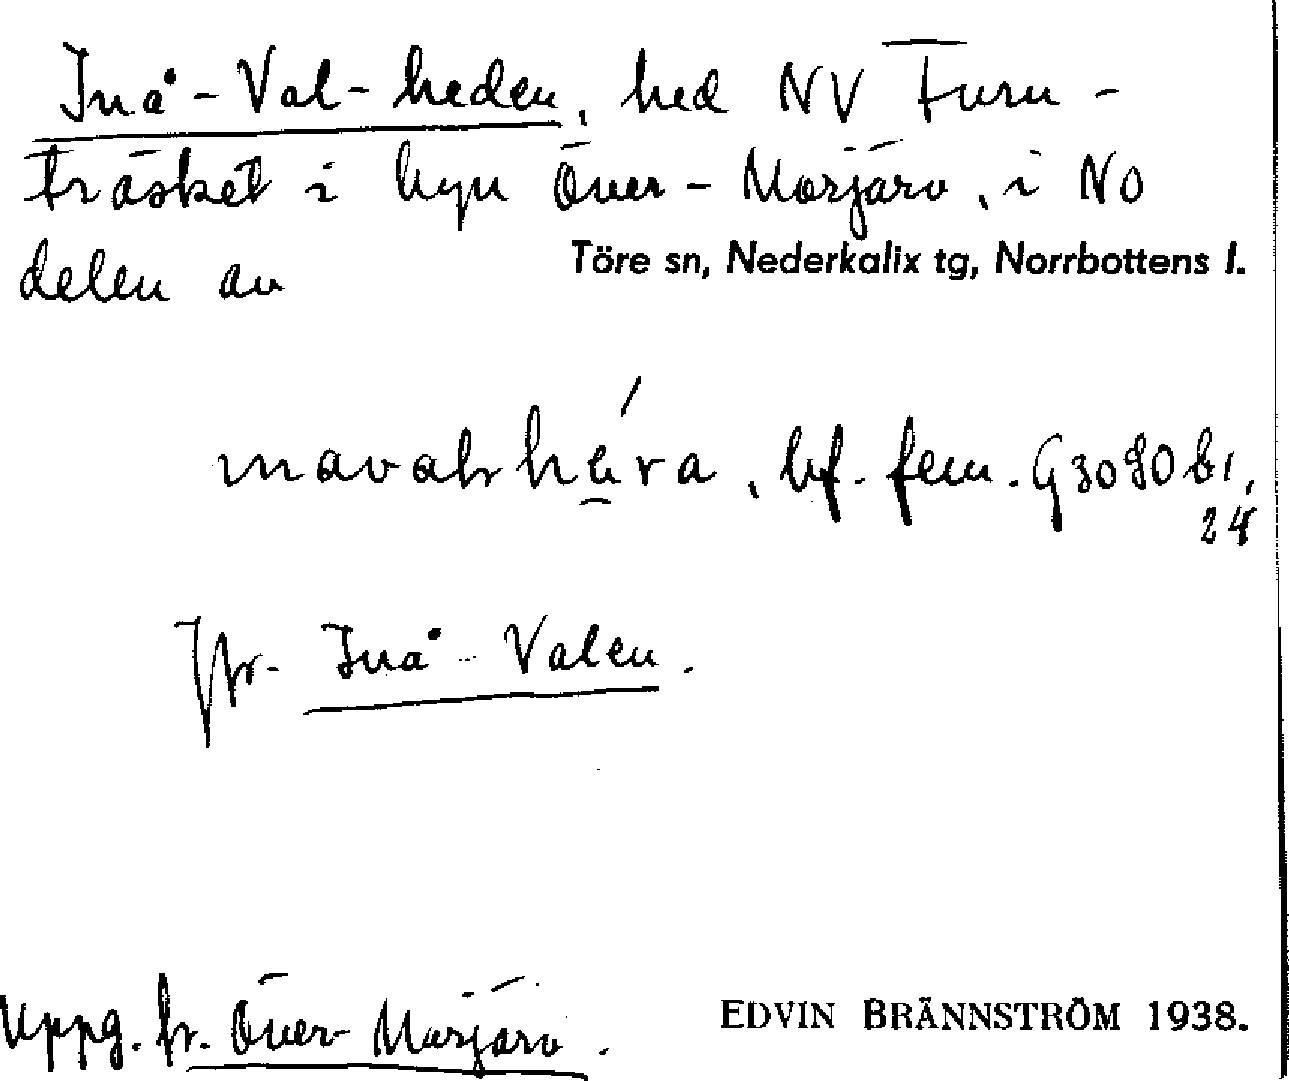 Inå-Val-heden, hed NV Furu-
träsket i byn Över-Morjärv, i NO
delen av Töre sn, Nederkalix tg, Norrbottens l.
bf. fem. G 3080 b1,
24
Jfr. Inå-Valen.
Uppg. fr. Över-Morjärv. EDVIN BRÄNNSTRÖM 1938.